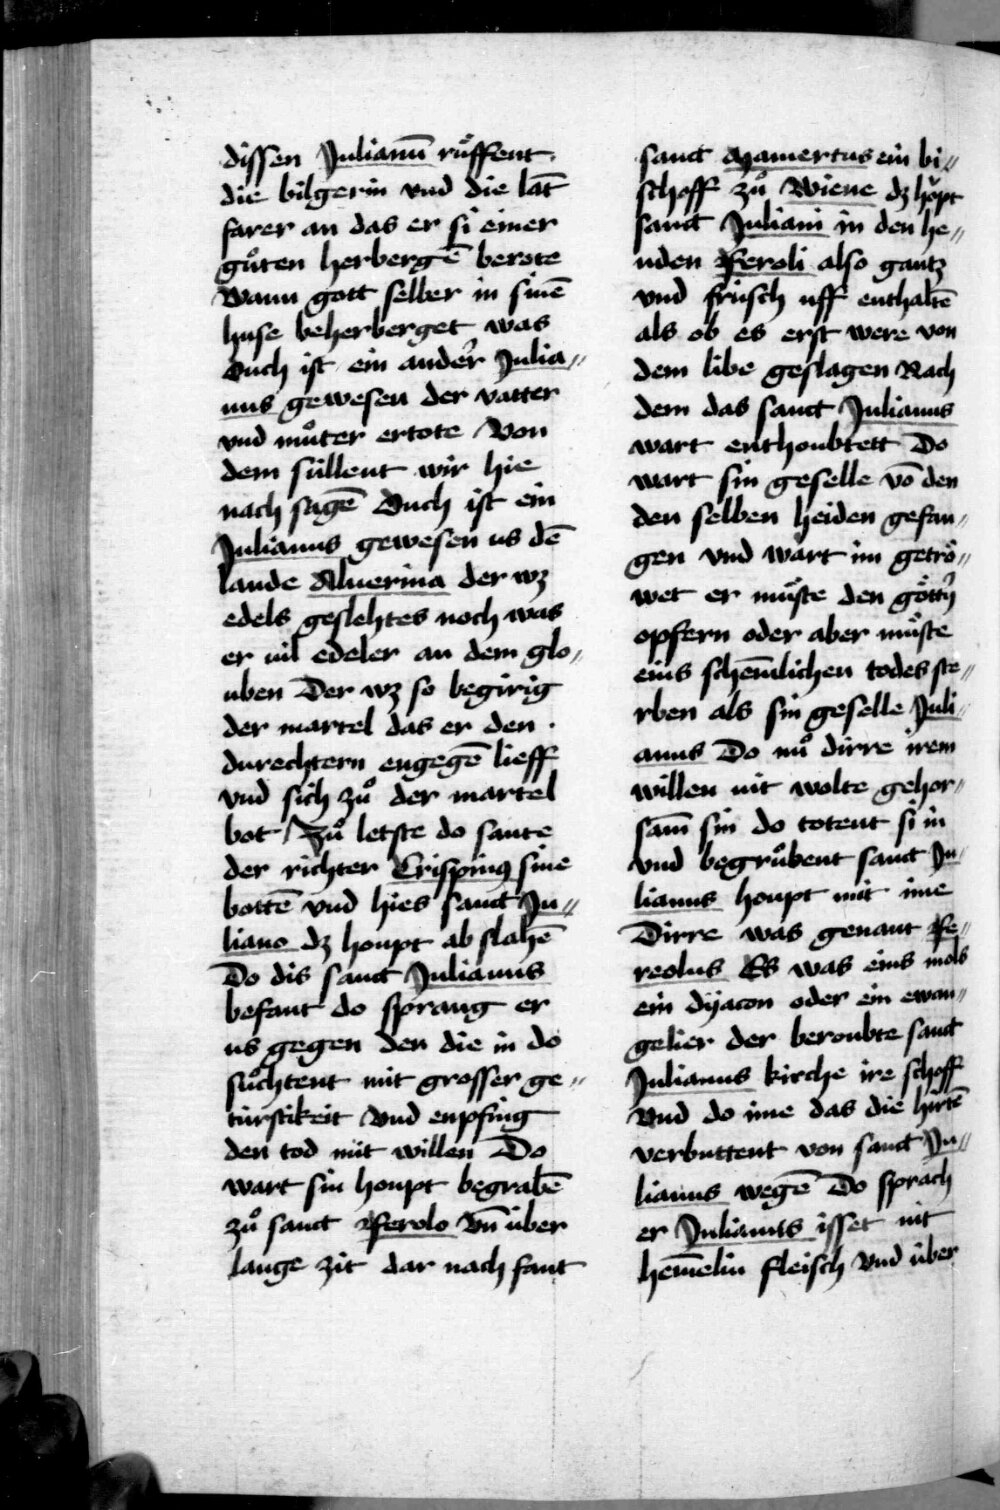 dissen Julianū rüffent
die bilgerin vnd die lāt
farer an das er si einer
gůten herbergē berote
Wann gott selber in sinē
huse beherberget was
Ouch ist ein ander Julia„
nus gewesen der vatter
vnd můter ertote Von
dem süllent wir hie
nach sagē Ouch ist ein
Julianus gewesen us dē
lande Aluerina der wz
edels geslehtes noch was
er vil edeler an dem glo„
uben Der wz so begirig
der martel das er den
durechtern engegē lieff
vnd sich zů der martel
bot Zů letste do sante
der richter Crispinus sine
bottē vnd hies sanct Ju„
liano dz houpt ab slahē
Do dis sanct Julianus
befant do sprang er
us gegen den die in do
sůchtent mit grosser ge„
türstikeit Vnd enpfing
den tod mit willen Do
wart sin houpt begrabē
zů sanct Ferolo Vn̄ über
lange zit dar nach fant
sanct Mamertus ein bi„
schoff zů Wiene dz hǒpt
sanct Juliani in den he„
nden Feroli also gantz
vnd früsch uff enthaltē
als ob es erst were von
dem libe geslagen Nach
dem das sanct Julianus
wart enthoubtett Do
wart sin geselle vō den
den selben heiden gefan„
gen vnd wart im getrö„
wet er müste den götter
opfern oder aber müste
eins schēmlichen todes ste„
rben als sin geselle Juli„
anus Do nů dirre irem
willen nit wolte gehor„
sam̄ sin do totent si in
vnd begrůbent sanct Ju„
lianus houpt mit ime
Dirre was genant Fe„
reolus Es was eins mols
ein dyacon oder ein ewan„
gelier der beroubte sanct
Julianus kirche ire schoff
Vnd do ime das die hirtē
verbuttent von sanct Ju„
lianus wegē Do sprach
er Julianus isset nit
hemēlin fleisch Vnd über